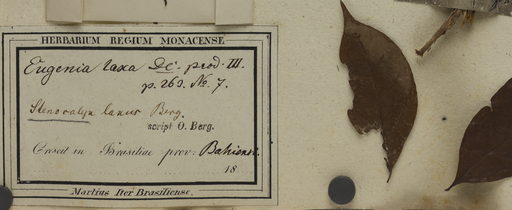 HERBARIUM REGIUM MONACENSE
Eugenia laxa DC. prod. III.
p. 263. No. 7.
Stenocalyx laxus Berg.
script O. Berg.
Crescit in Brasiliae prov: Bahiensi.
18
Martius Iter Brasiliense.